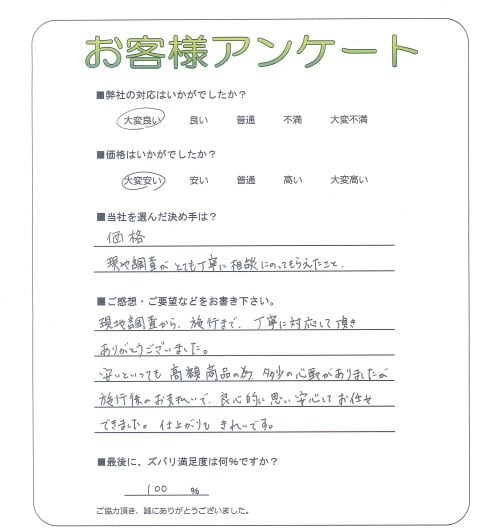 お客様アンケート
■弊社の対応はいかがでしたか？
大変良い 良い 普通 不満 大変不満
■価格はいかがでしたか？
大変安い 安い 普通 高い 大変高い
■当社を選んだ決め手は？
価格
現地調査がとても丁寧に相談にのってもらえたこと。
■ご感想・ご要望などをお書き下さい。
現地調査から、施行まで、丁寧に対応して頂き
ありがとうございました。
安いといっても高額商品の為、多少の心配がありましたが
施行後のお支払いで、良心的に思い安心してお任せ
できました。仕上がりもきれいです。
■最後に、ズバリ満足度は何％ですか？
100 %
ご協力頂き、誠にありがとうございました。